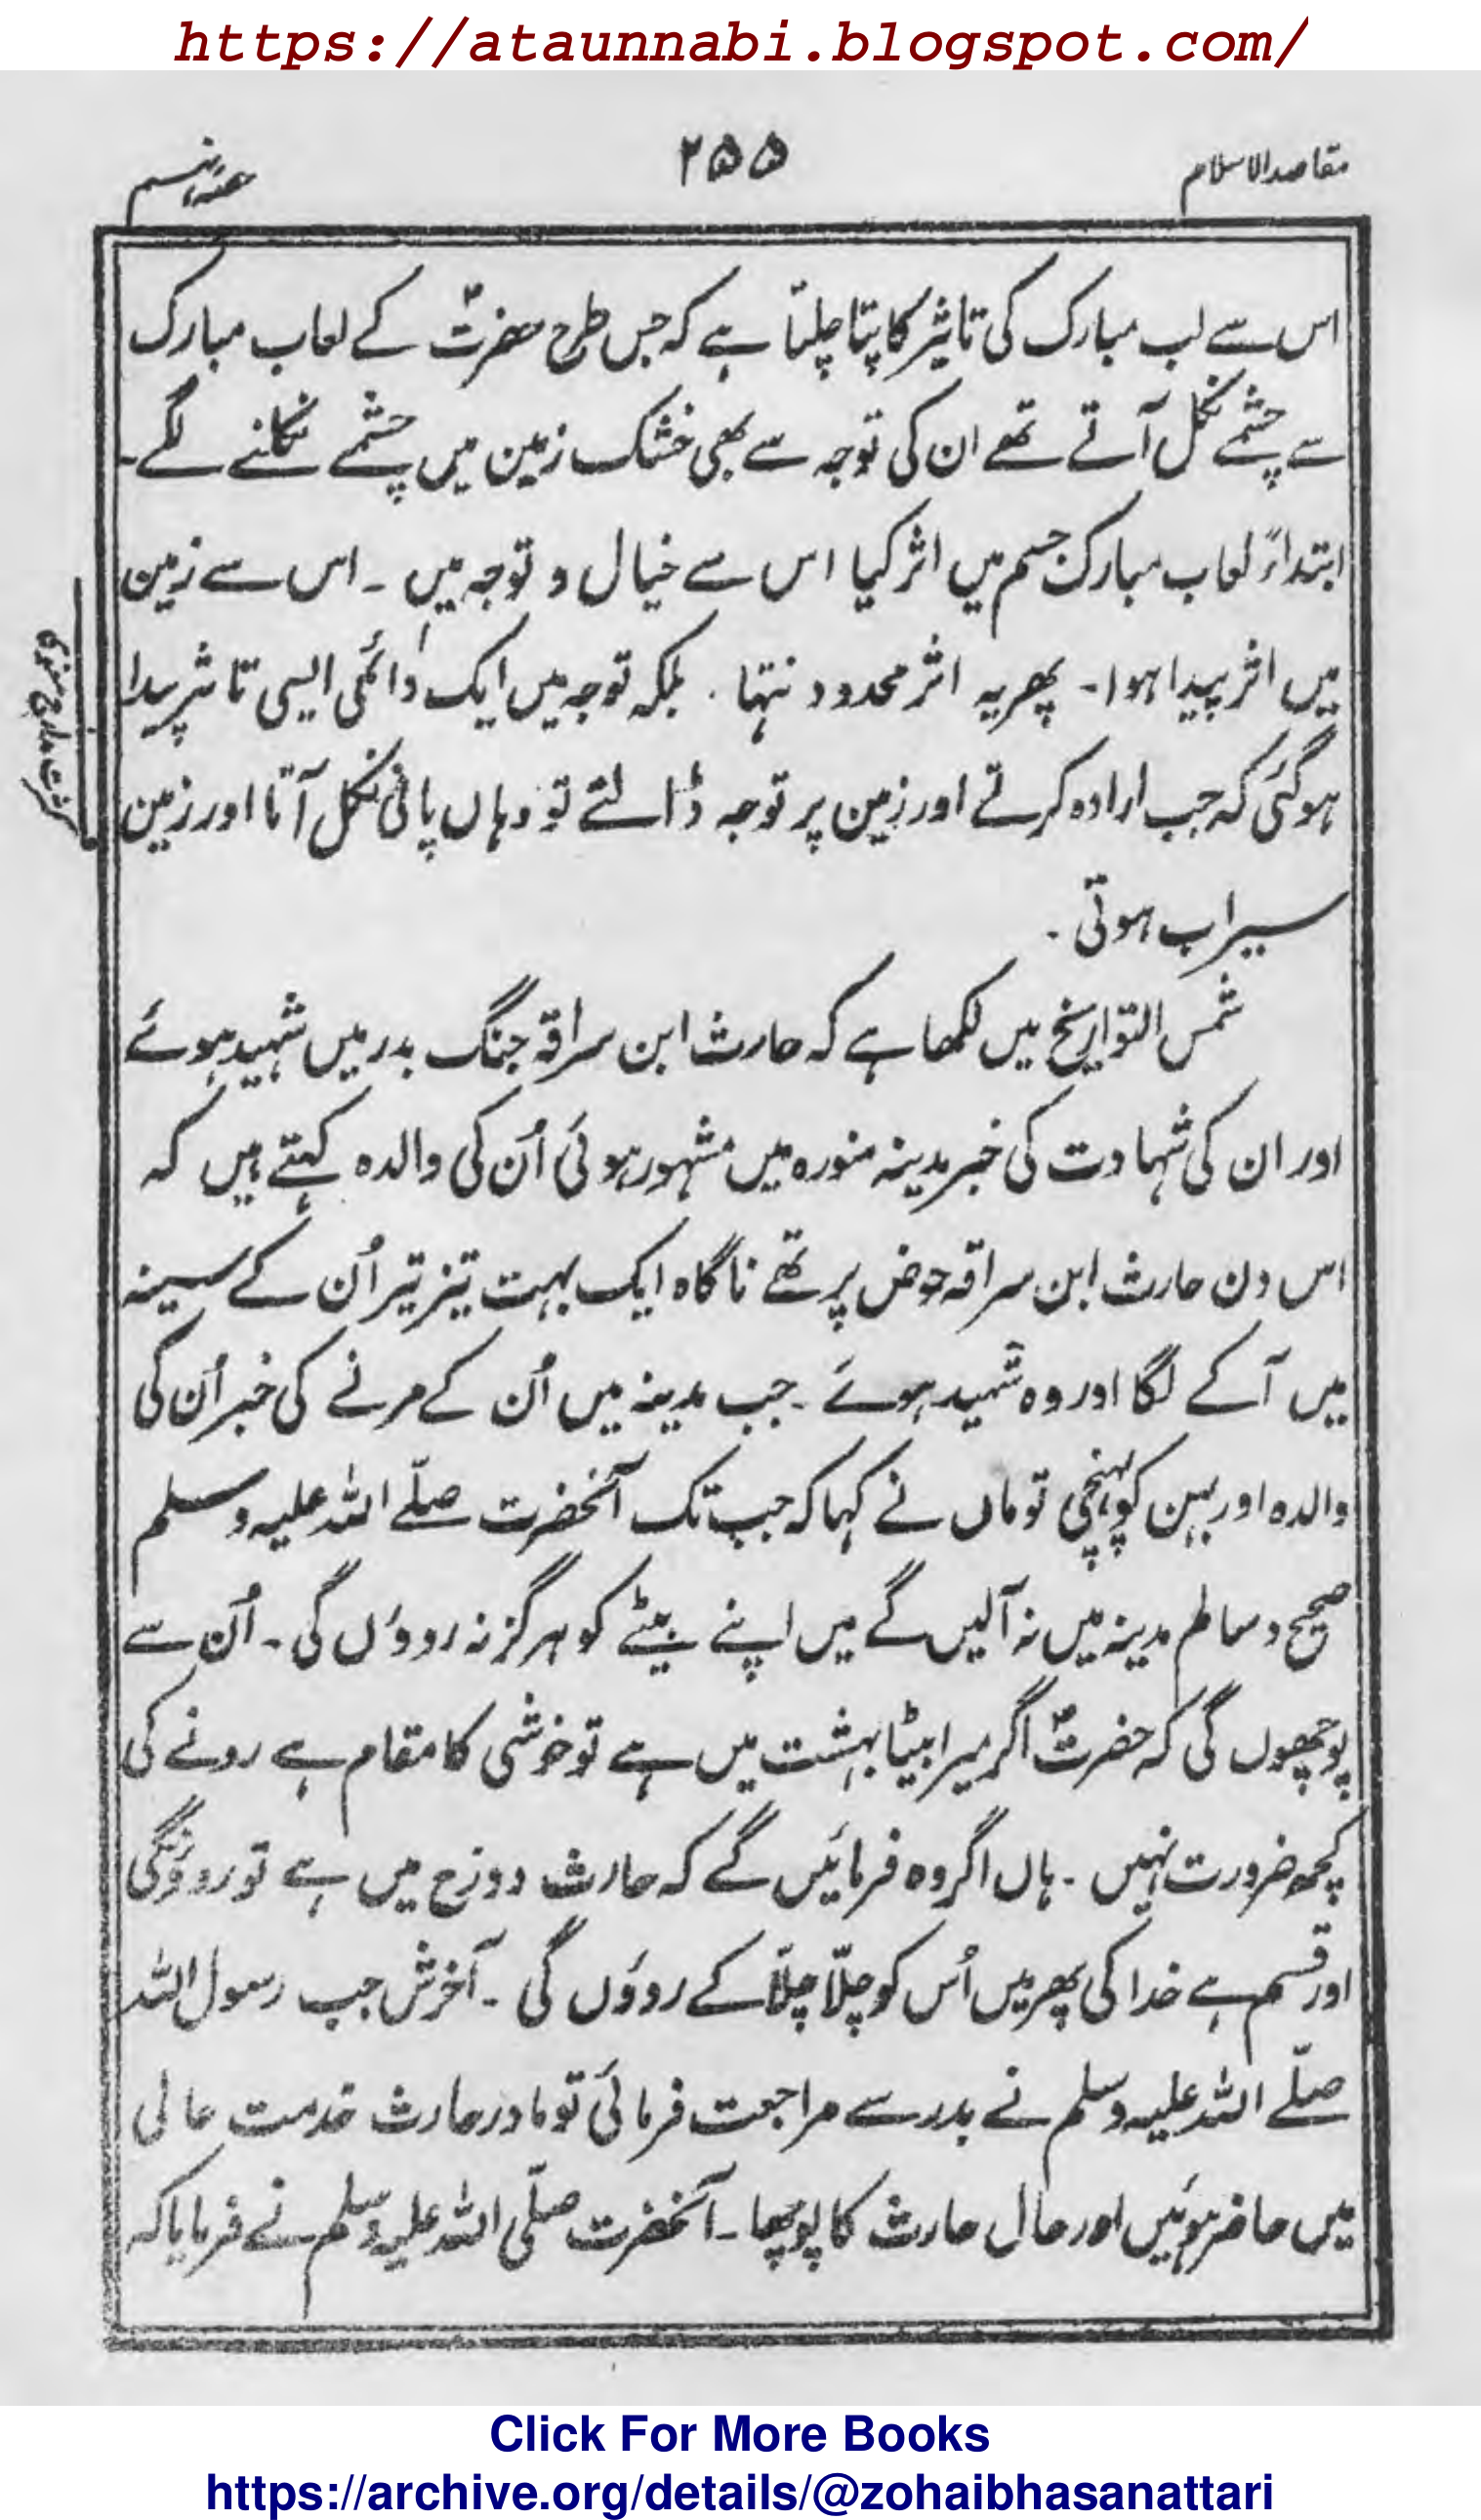 https://ataunnabi.blogspot.com/
مقاصد الاسلام
۲۵۵
اس سے لب مبارک کی تاثیر کا پتا چلتا ہے کہ جس طرح حضرتؐ کے لعاب مبارک
سے چشمے نکل آتے تھے ان کی توجہ سے بھی خشک زمین میں چشمے نکلنے لگے۔
ابتداءً لعاب مبارک جسم میں اثر کیا اس سے خیال و توجہ میں ۔ اس سے زمین
میں اثر پیدا ہوا۔ پھر یہ اثر محدود نتہا ۔ بلکہ توجہ میں ایک دائمی ایسی تاثیر پیدا
ہوگئی کہ جب ارادہ کرتے اور زمین پر توجہ ڈالتے تو وہاں پانی نکل آتا اور زمین
سیراب ہوتی ۔
شمس التواریخ میں لکھا ہے کہ حارث ابن سراقہ جنگ بدر میں شہید ہوئے
اور ان کی شہادت کی خبر مدینہ منورہ میں مشہور ہوئی اُن کی والدہ کہتے ہیں کہ
اس دن حارث ابن سراقہ حوض پر تھے ناگاہ ایک بہت تیز تیر اُن کے سینہ
میں آکے لگا اور وہ شہید ہوئے ۔ جب مدینہ میں اُن کے مرنے کی خبر اُن کی
والدہ اور بہن کو پہنچی تو ماں نے کہا کہ جب تک آنحضرت صلّے اللہ علیہ وسلم
صحیح و سالم مدینہ میں نہ آلیں گے میں اپنے بیٹے کو ہرگز نہ روؤں گی ۔ اُن سے
پوچھوں گی کہ حضرتؐ اگر میرا بیٹا بہشت میں ہے تو خوشی کا مقام ہے رونے کی
کچھ ضرورت نہیں ۔ ہاں اگر وہ فرمائیں گے کہ حارث دوزخ میں ہے تو روؤنگی
اور قسم ہے خدا کی پھر میں اُس کو چلّا چلّا کے روؤں گی ۔ آخرش جب رسول اللہ
صلّے اللہ علیہ وسلم نے بدر سے مراجعت فرمائی تو مادر حارث خدمت عالی
میں حاضر ہوئیں اور حال حارث کا پوچھا ۔ آنحضرت صلّی اللہ علیہ وسلم نے فرمایا کہ
Click For More Books
https://archive.org/details/@zohaibhasanattari